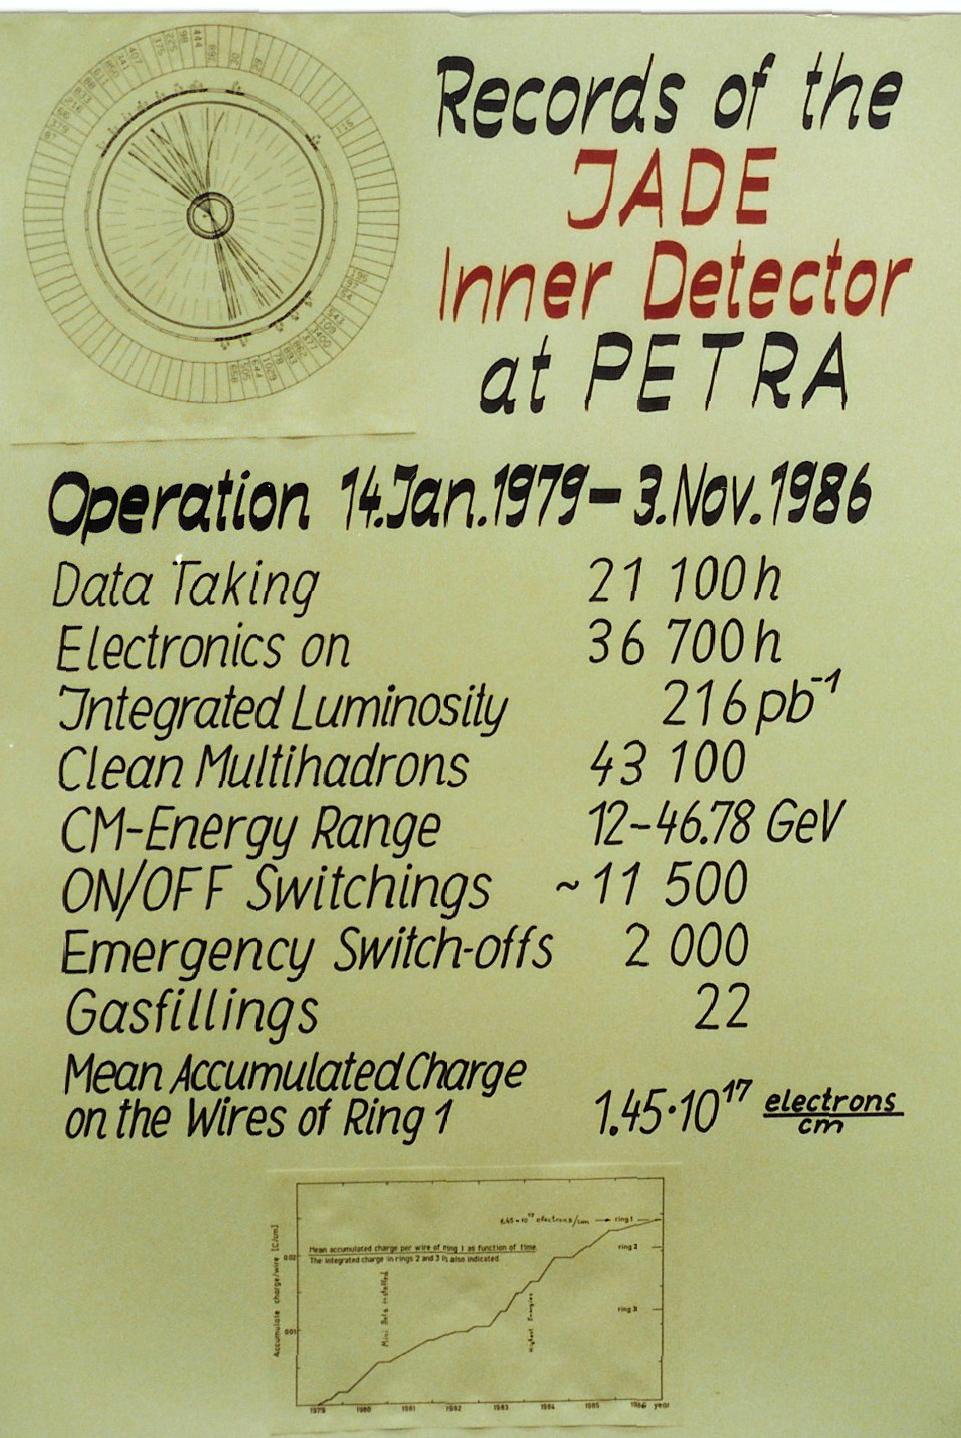 Records of the
JADE
Inner Detector
at PETRA
Operation 14.Jan.1979 – 3.Nov.1986
Data Taking 21 100 h
Electronics on 36 700 h
Integrated Luminosity 216 pb⁻¹
Clean Multihadrons 43 100
CM-Energy Range 12-46.78 GeV
ON/OFF Switchings ~11 500
Emergency Switch-offs 2 000
Gasfillings 22
Mean Accumulated Charge
on the Wires of Ring 1 1.45·10¹⁷ electrons/cm
electrons/cm → ring 1
Mean accumulated charge per wire of ring 1 as function of time.
The integrated charge in rings 2 and 3 is also indicated.
ring 2
ring 3
Accumulate charge/wire [C/cm]
0.02
0.01
Mini Beta installed
Highest Energies
1979 1980 1981 1982 1983 1984 1985 1986 year